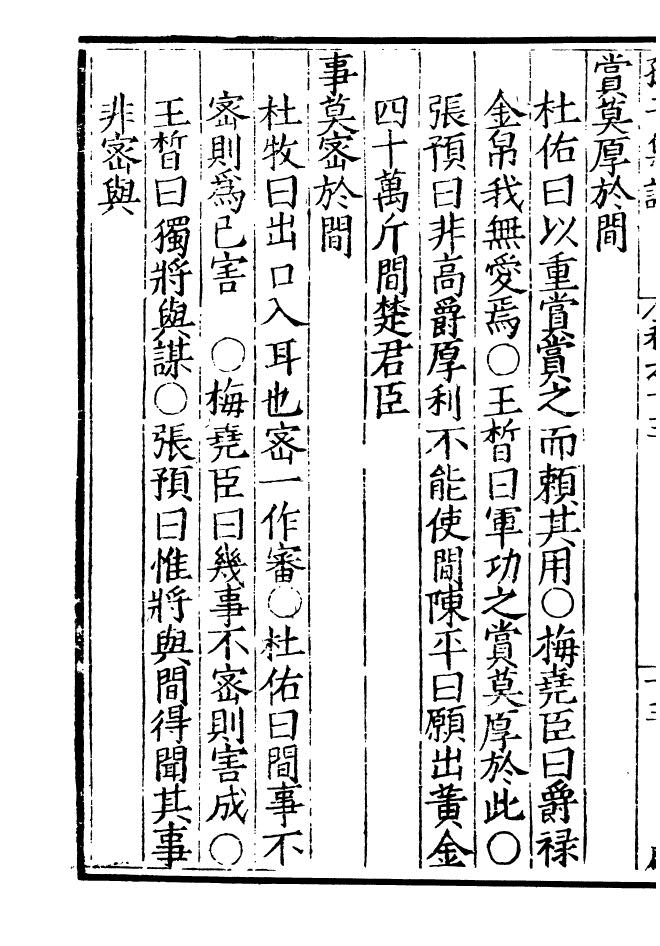 賞莫厚於間
杜佑曰以重賞賞之而賴其用○梅堯臣曰爵祿
金帛我無愛焉○王晳曰軍功之賞莫厚於此○
張預曰非高爵厚利不能使間陳平曰願出黃金
四十萬斤間楚君臣
事莫密於間
杜牧曰出口入耳也密一作審○杜佑曰間事不
密則爲己害○梅堯臣曰幾事不密則害成○
王晳曰獨將與謀○張預曰惟將與間得聞其事
非密與